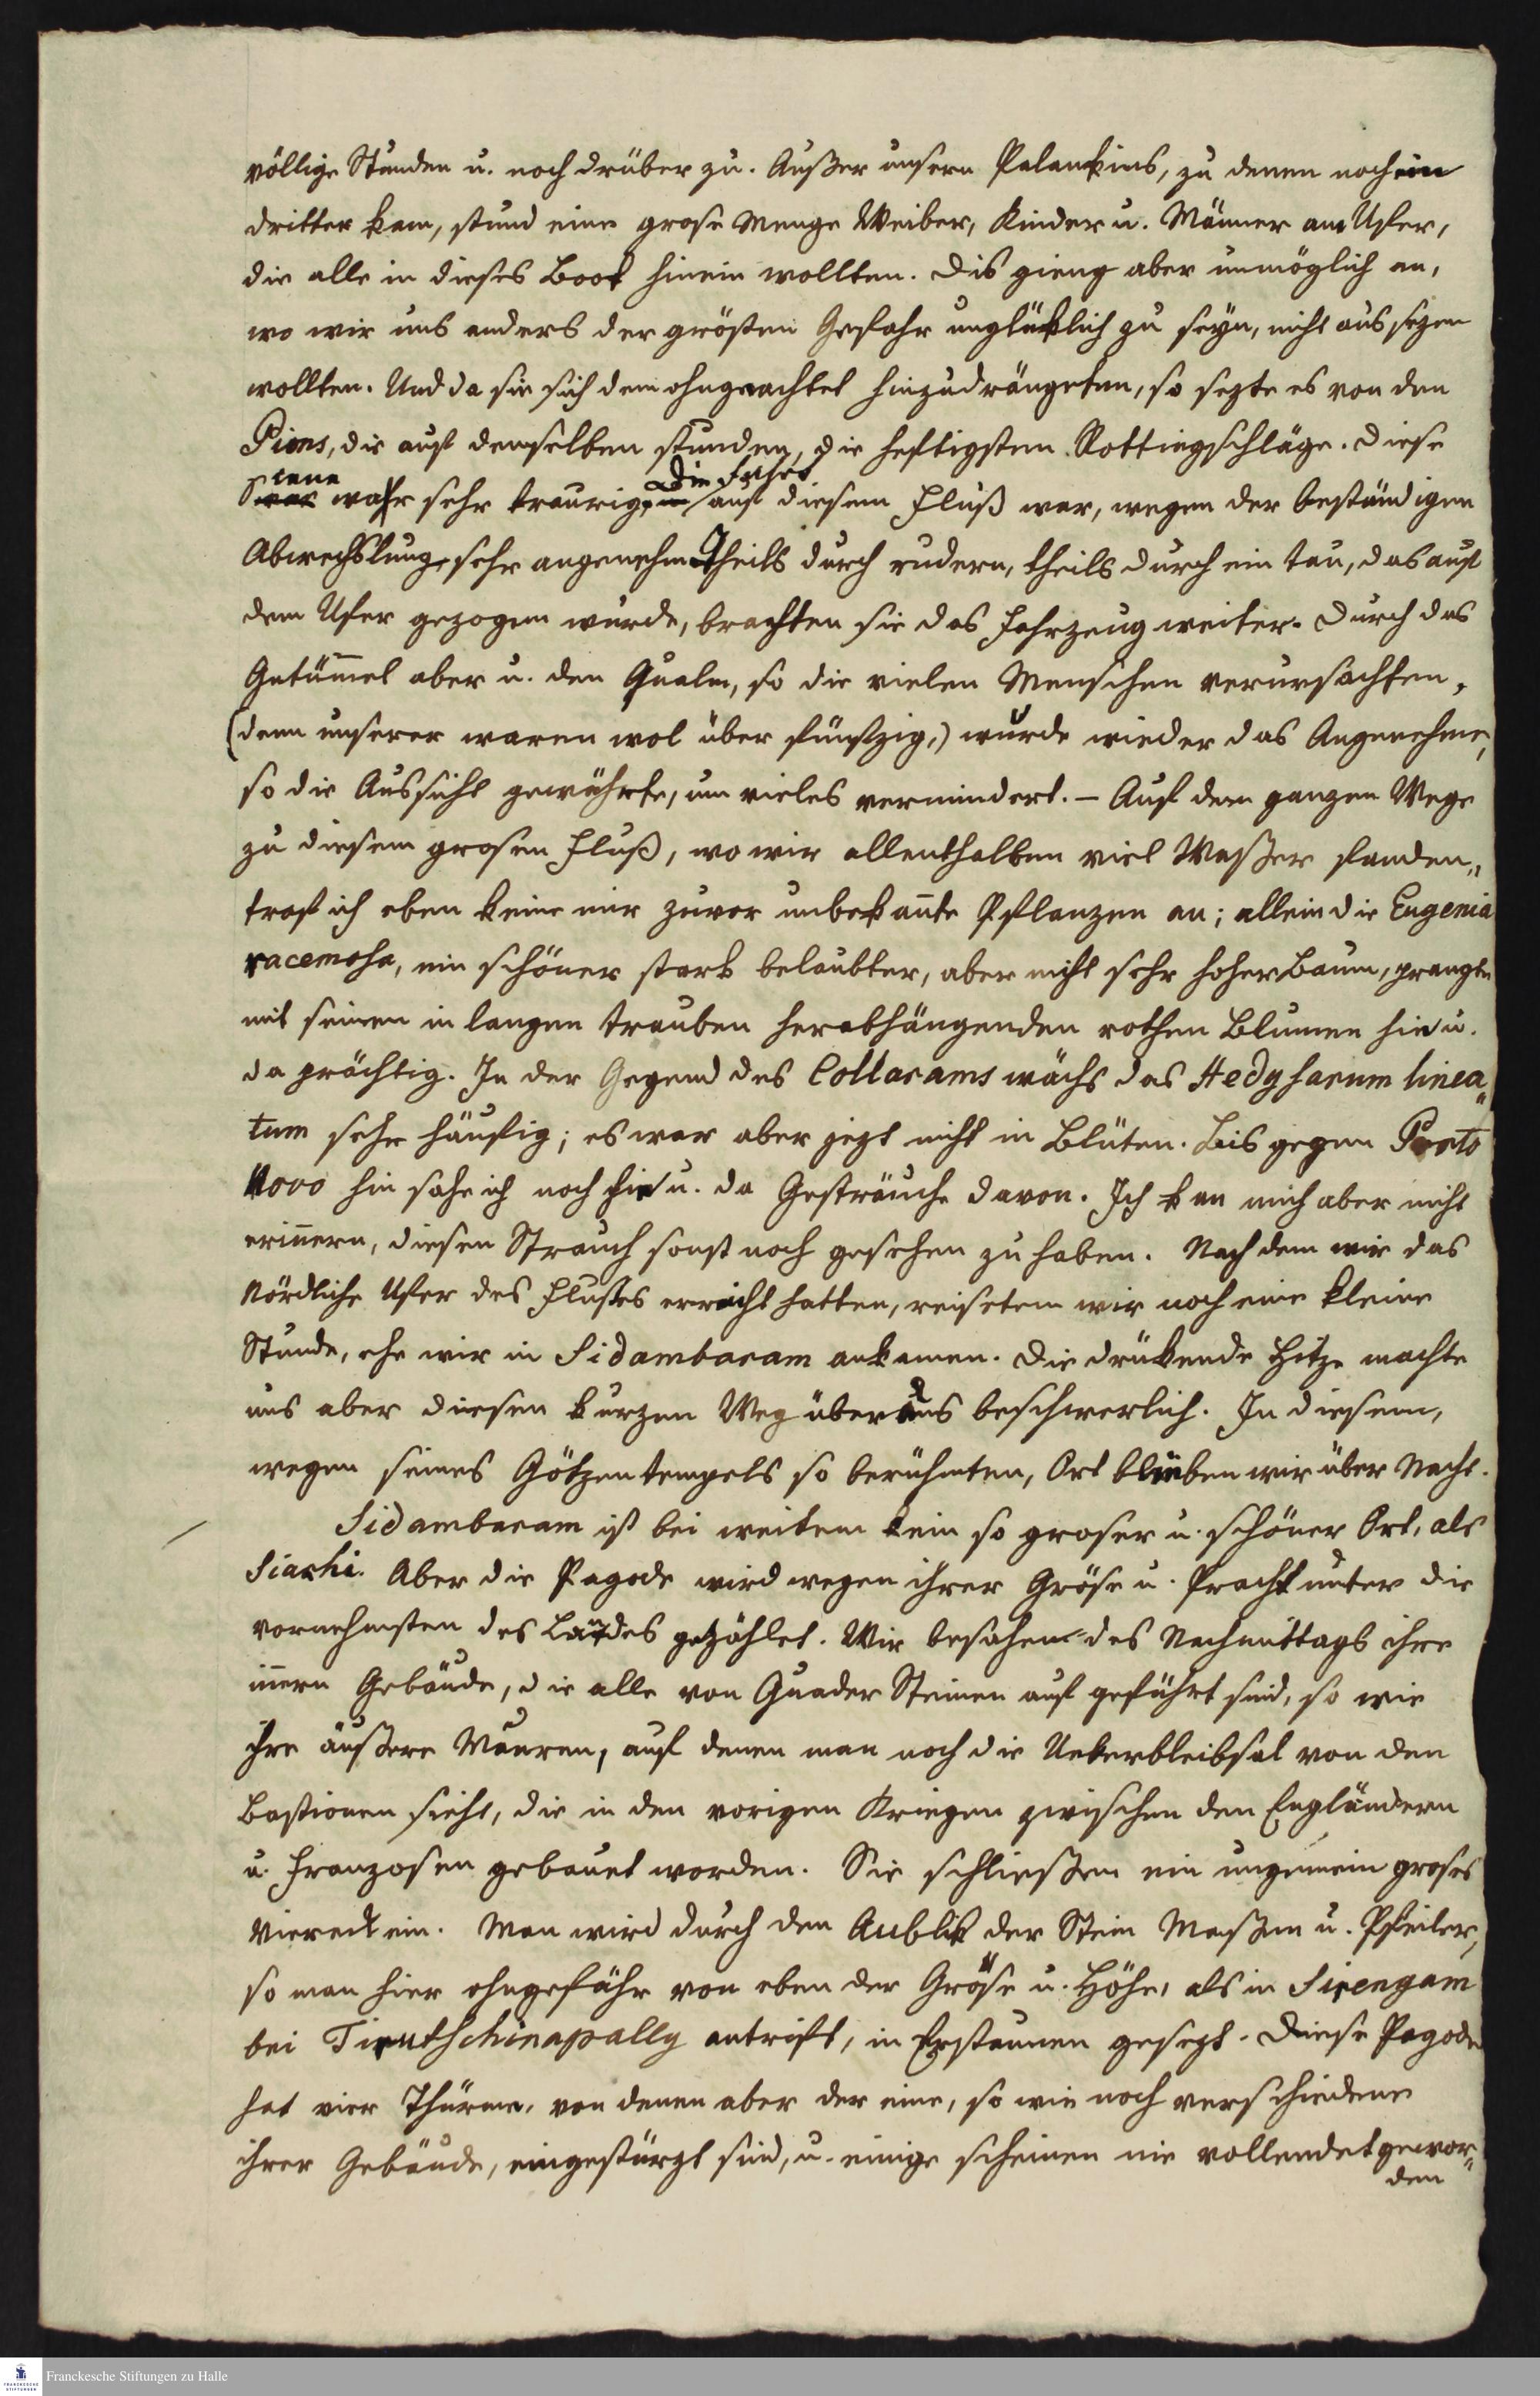 völlige Stunden u. noch drüber zu. Außer unsern Palankins, zu denen noch ein
dritter kam, stund eine grose Menge Weiber, Kinder u. Männer am Ufer,
die alle in dieses Boot hinein wollten. Dis gieng aber unmöglich an,
wo wir uns anders der grösten Gefahr unglüklich zu seyn, nicht aussezen
wollten. Und da sie sich dem ohngeachtet hinzudrängeten, so sezte es von den
Pions, die auf demselben stunden, die heftigsten Rottingschläge. Diese
Scene war sehr traurig. Die Fahrt auf diesem Fluß war, wegen der beständigen
Abwechslung, sehr angenehm. Theils durch rudern, theils durch ein Tau, das auf
dem Ufer gezogen wurde, brachten sie das Fahrzeug weiter. Durch das
Getüm̄el aber u. den Qualm, so die vielen Menschen verursachten,
(denn unserer waren wol über funfzig,) wurde wieder das Angenehme,
so die Aussicht gewährte, um vieles vermindert. – Auf dem ganzen Wege
zu diesem grosen Fluß, wo wir allenthalben viel Waßer fanden,
traf ich eben keine mir zuvor unbekan̄te Pflanzen an; allein die Eugenia
racemosa, ein schöner stark belaubter, aber nicht sehr hoher Baum, prangte
mit seinen in langen Trauben herabhängenden rothen Blumen hie u.
da prächtig. In der Gegend des Collarams wächs das Hedysarum linea„
tum sehr häufig; es war aber jezt nicht in Blüten. Bis gegen Porto
Novo hin sahe ich noch hie u. da Gesträuche davon. Ich kan mich aber nicht
erin̄ern, diesen Strauch sonst noch gesehen zu haben. Nach dem wir das
Nördliche Ufer des Flußes erreicht hatten, reiseten wir noch eine kleine
Stunde, ehe wir in Sidambaram ankamen. Die drükende Hitze machte
uns aber diesen kurzen Weg überaus beschwerlich. In diesem,
wegen seines Götzentempels so berühmten, Ort blieben wir über Nacht.
Sidambaram ist bei weitem kein so groser u. schöner Ort, als
Siarhi. Aber die Pagode wird wegen ihrer Gröse u. Pracht unter die
vornehmsten des Landes gezählet. Wir besahen des Nachmittags ihre
in̄ern Gebäude, die alle von Quader Steinen auf geführt sind, so wie
ihre äußere Mauren, auf denen man noch die Ueberbleibsal von den
Bastionen sieht, die in den vorigen Kriegen zwischen den Engländern
u. Franzosen gebauet worden. Sie schließen ein ungemein groses
Viereck ein. Man wird durch den Anblik der Stein Maßen u. Pfeiler,
so man hier ohngefähr von eben der Gröse u. Höhe, als in Sirengam
bei Tirutschinapally antrift, in Erstaunen gesezt. Diese Pagode
hat vier Thürme, von denen aber der eine, so wie noch verschiedene
ihrer Gebäude, eingestürzt sind, u. einige scheinen nie vollendet gewor„
den
Franckesche Stiftungen zu Halle